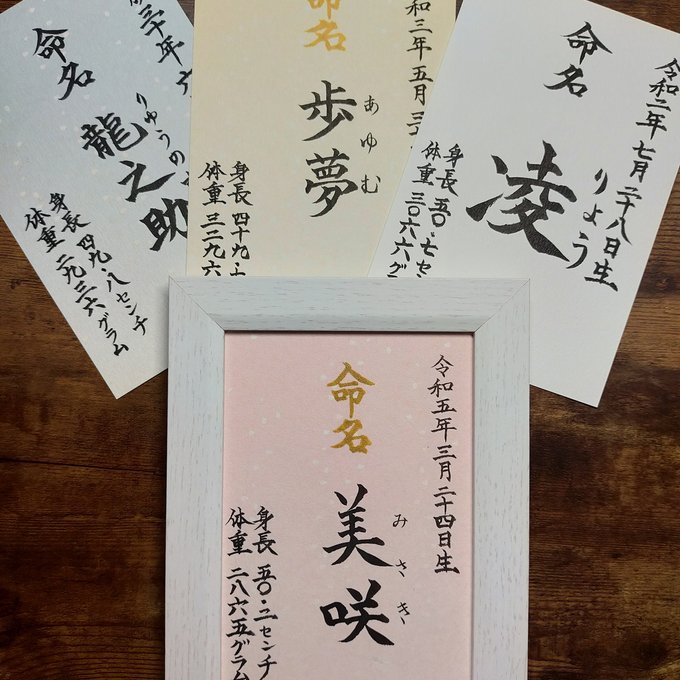 命名
龍之助
りゅうの
身長 四九・八センチ
体重 二九三六グラム
和三年五月三
命名
歩夢
あゆむ
身長 四十九・
体重 三二九六
令和二年七月二十八日生
命名
凌
りょう
身長 五〇・七セン
体重 三〇六六グ
令和五年三月二十四日生
命名
美咲
みさき
身長 五〇・二センチ
体重 二八六五グラム